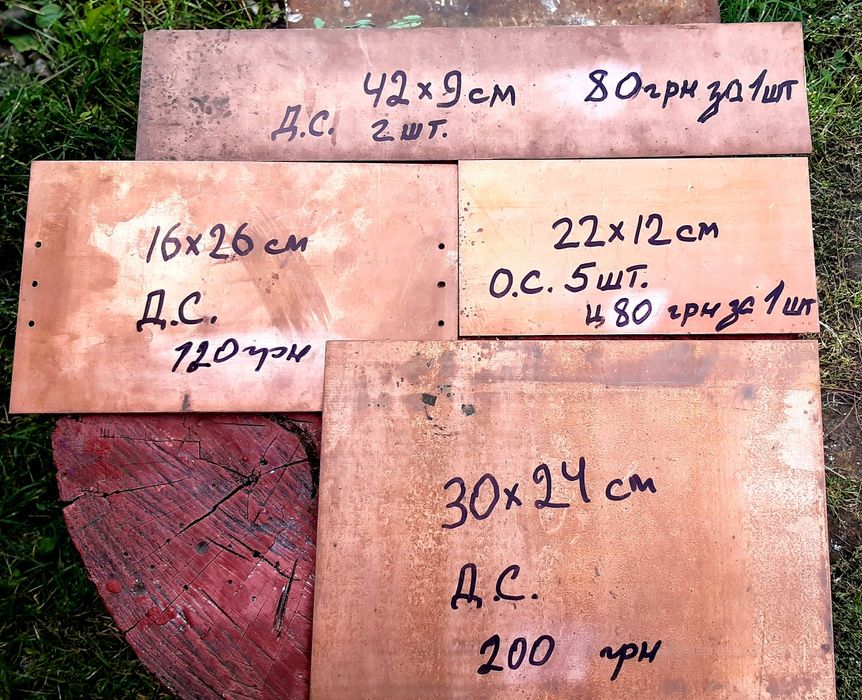 42×9 см 80 грн за 1 шт
Д.С. 2 шт.
16×26 см
Д.С.
120 грн
22×12 см
О.С. 5 шт.
Ц 80 грн за 1 шт
30×24 см
Д.С.
200 грн